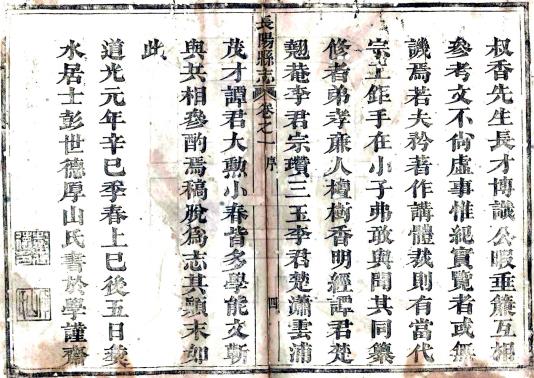 叔香先生長才博識公暇垂簾互相
參考文不尙虛事惟紀實覽者或無
譏焉若夫矜著作講體裁則有當代
宗工鉅手在小子弗敢與聞其同纂
修者弟孝廉人檀樹香明經譚君楚
翹菴李君宗瓚三玉李君楚瀟雲浦
長陽縣志 卷之一 序 四
茂才譚君大勲小春皆多學能文斬
與共相參酌焉稿脫為志其顚末如
此
道光元年辛巳季春上巳後五日業
水居士彭世德厚山氏書於學謹齋